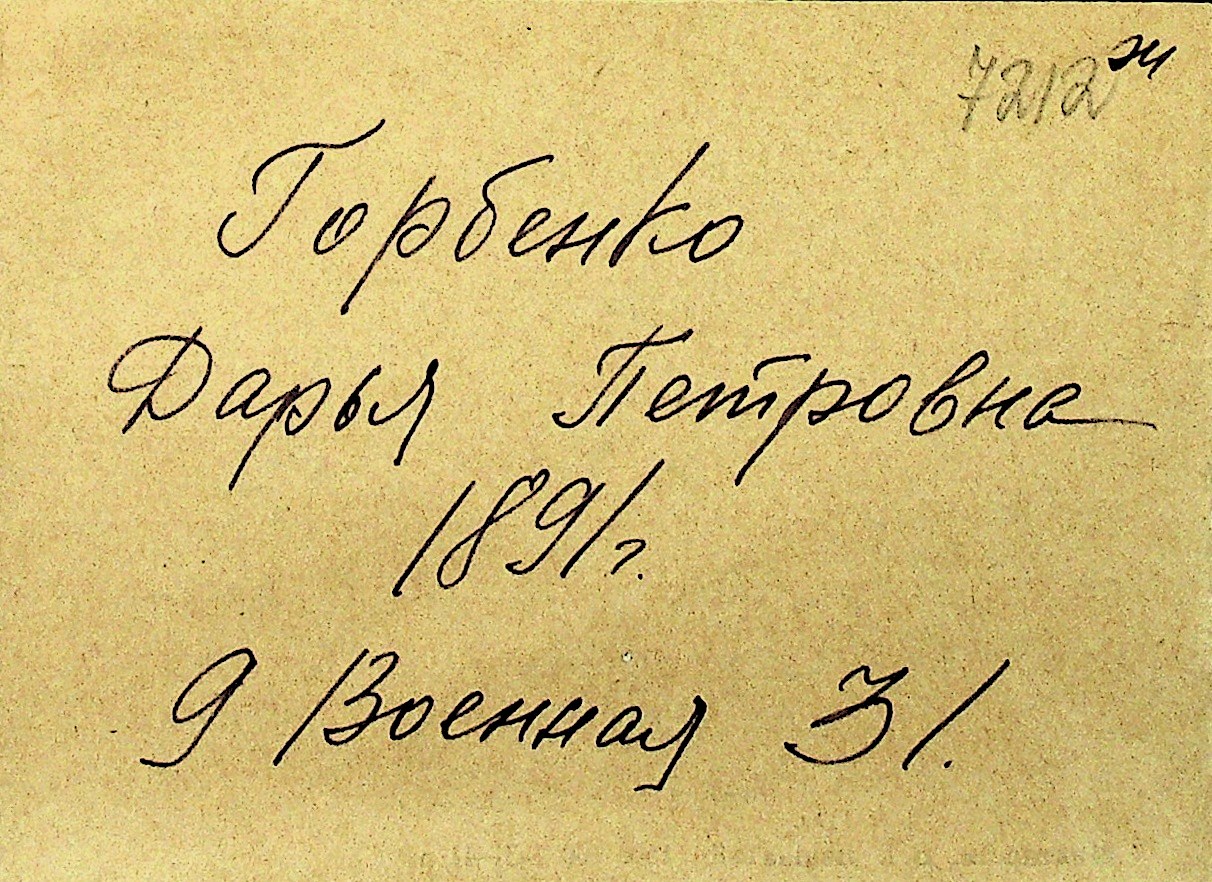 7212 ж
Горбенко
Дарья Петровна
1891г.
9 Военная 31.